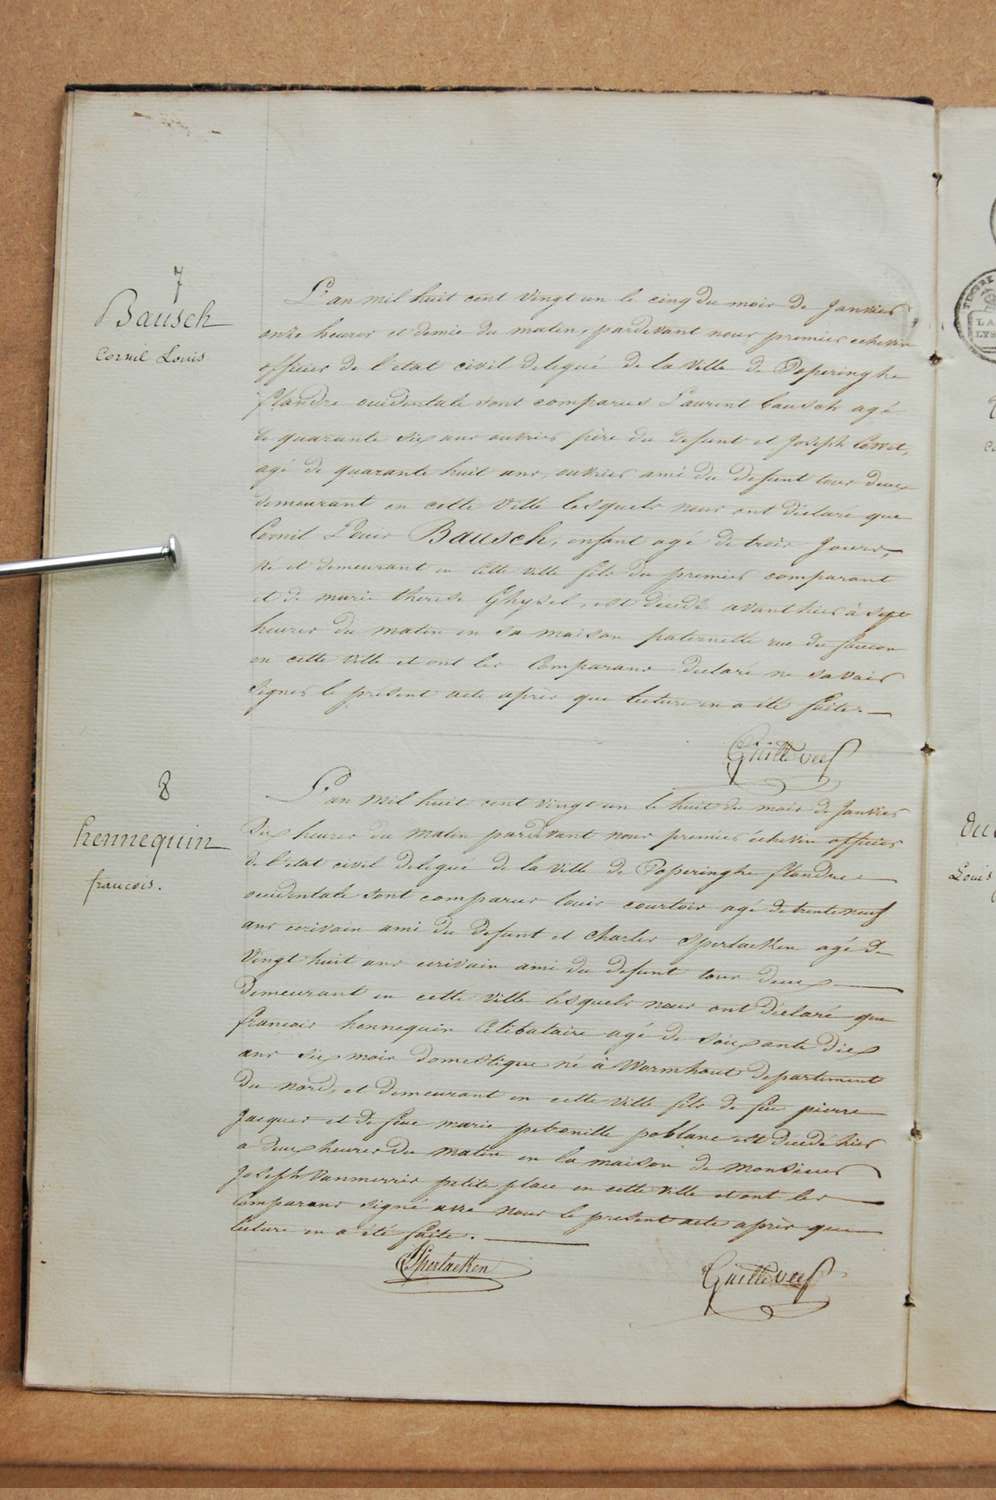 7
Bausch
Cornil Louis
L'an mil huit cent vingt un le cinq du mois de Janvier
onze heures et demie du matin, pardevant nous premier echevin
officier de l'etat civil delegué de la ville de Poperinghe
flandre occidentale sont comparus Laurent bausch agé
de quarante six ans ouvrier père du defunt et Joseph
agé de quarante huit ans, ouvrier ami du defunt tous deux
demeurant en cette ville lesquels nous ont déclaré que
Cornil Louis Bausch, enfant agé de trois jours,
né et demeurant en cette ville fils du premier comparant
et de marie therese Ghysel, est decedé avant hier à sept
heures du matin en sa maison paternelle rue du faucon
en cette ville et ont les comparans declaré ne savoir
signer le présent acte après que lecture en a été faite.
8
hennequin
francois.
L'an mil huit cent vingt un le huit du mois de Janvier
dix heures du matin pardevant nous premier échevin officier
de l'état civil delegué de la ville de Poperinghe flandre
occidentale sont comparus louis courtois agé de trente neuf
ans ecrivain ami du defunt et charles Sperlaeken agé de
vingt huit ans ecrivain ami du defunt tous deux
demeurant en cette ville lesquels nous ont déclaré que
francois hennequin celibataire agé de soixante dix
ans six mois domestique né à Wormhout departement
du nord, et demeurant en cette ville fils de feu pierre
Jacques et de feue marie petronille poblanc est decedé hier
a deux heures du matin en la maison de monsieur
Joseph Vanmerris petite place en cette ville et ont les
comparans signé avec nous le present acte après que
lecture en a été faite.
Sperlaeken